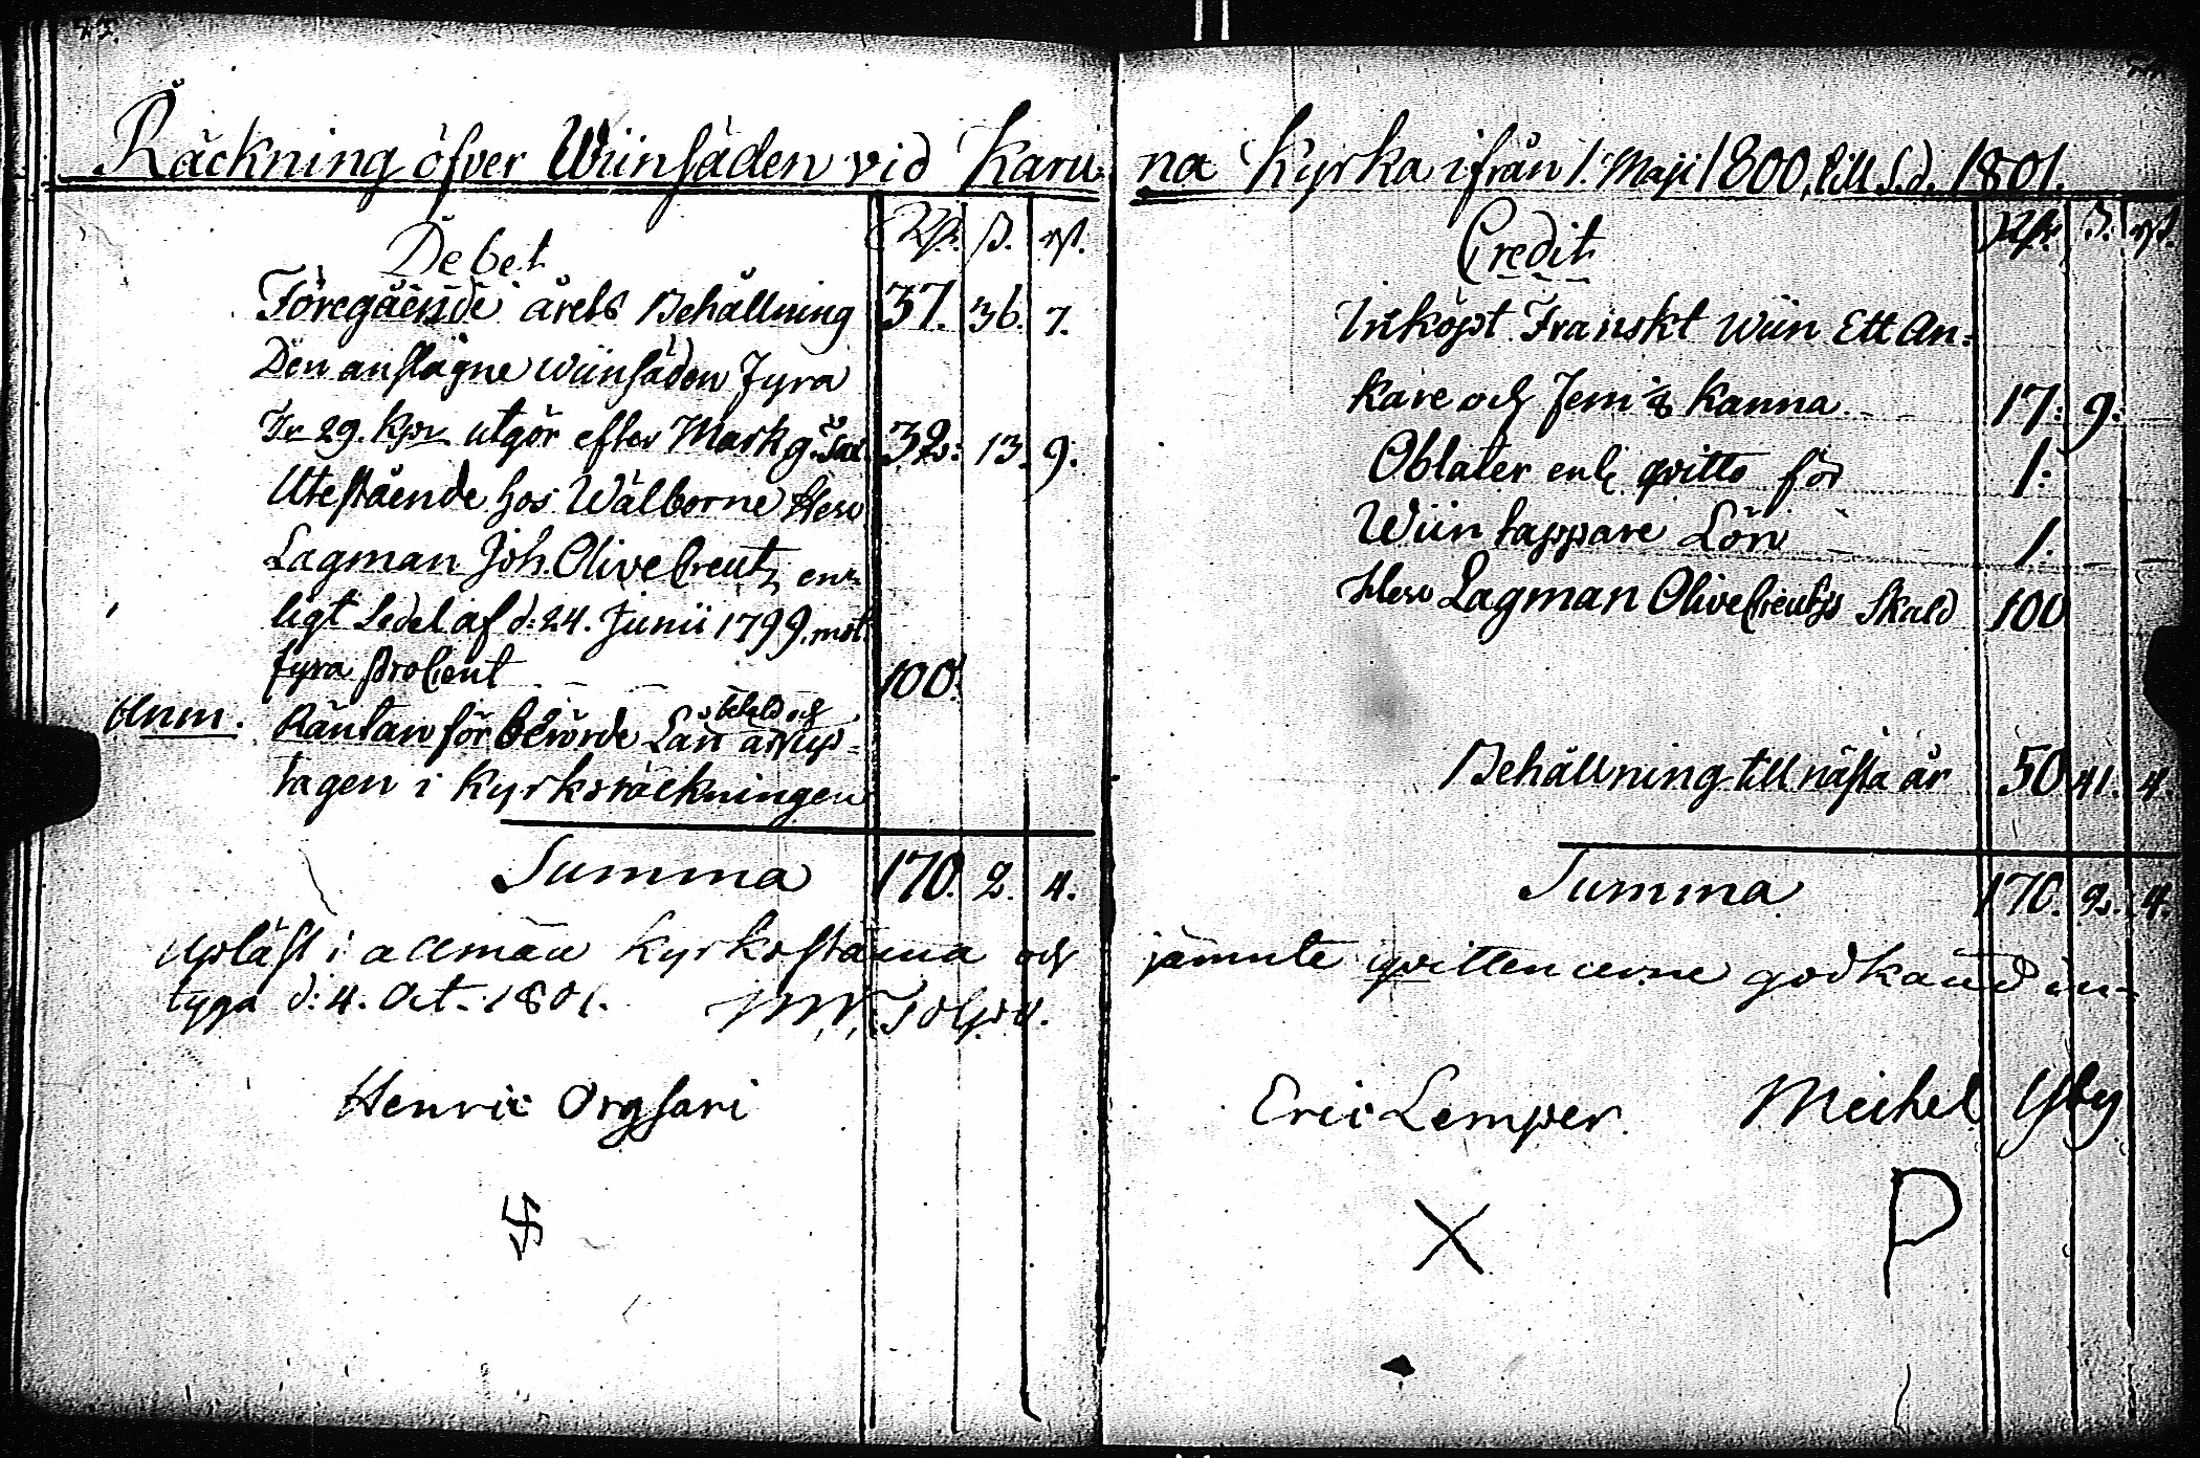 Räckning öfver Wiinsäden vid Karuna Kyrka ifrån 1. Maji 1800, till s.d. 1801.
Debet
Rdr. s. rst.
Föregåënde årets Behållning 37. 36. 7.
Den anslagne Wiinsäden Fyra
Tr 29. Kpr utgör efter Markg. Tax. 32: 13. 9.
Utestående hos Wälborne Herr
Lagman Joh. Olivecreutz en-
ligt Sedel af d: 24. Junii 1799. mot
fyra procent 100.
Anm. Räntan för berörde Lån är betald och up-
tagen i Kyrkoräckningen
Summa 170. 2. 4.
Upläst i allmän Kyrkostämma och
tyga d: 4. Oct. 1801.
Henric Orgsari
Credit
Rdr. s. rst.
Inköpt Franskt Wiin Ett An-
kare och Fem 8 Kanna 17: 9:
Oblater enl. qvitto för 1:
Wiin tappare Lön 1.
Herr Lagman Olivecreutz's Skuld 100
Behållning till nästa år 50 41. 4.
Summa 170. 2. 4.
jämnte qvittencerne godkänd in-
Eric Lemper. Meihel Ysby
X P